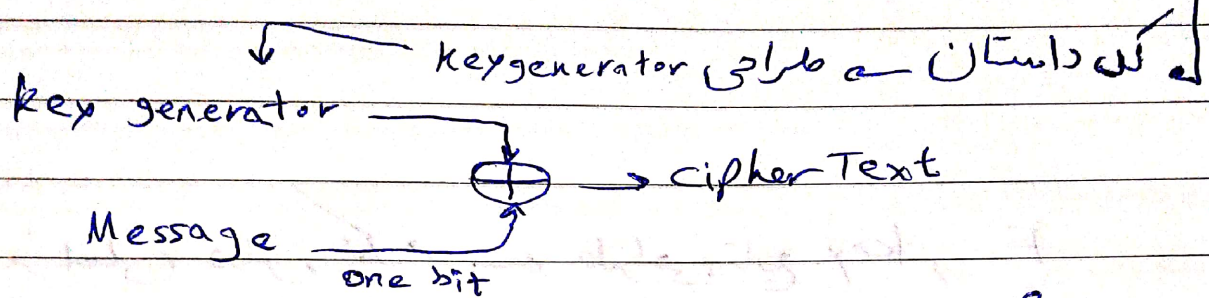 کل داستان ← طراحی keygenerator
key generator
⊕ → cipher Text
Message
one bit